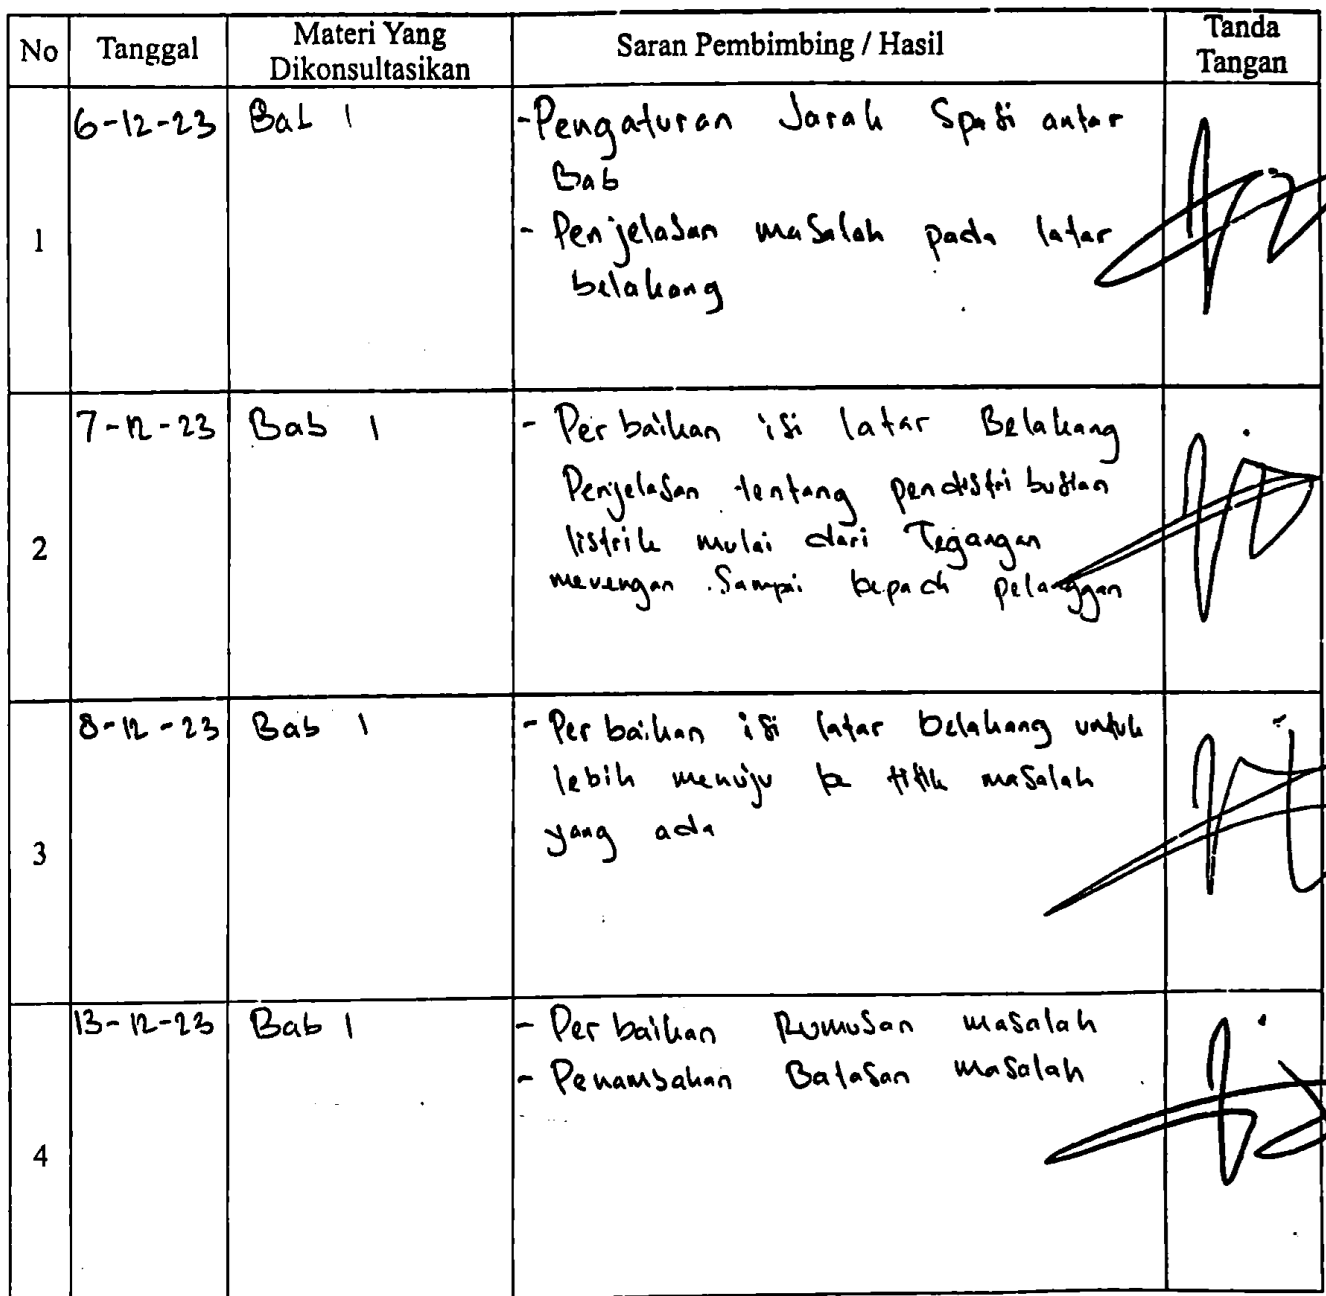 No Tanggal Materi Yang Dikonsultasikan Saran Pembimbing / Hasil Tanda Tangan
1 6-12-23 Bab 1 -Pengaturan Jarak Spasi antar
Bab
- Penjelasan masalah pada latar
belakang
2 7-12-23 Bab 1 - Perbaikan isi latar Belakang
Penjelasan tentang pendistribusian
listrik mulai dari Tegangan
menengan Sampai kepada pelanggan
3 8-12-23 Bab 1 - Perbaikan isi latar belakang untuk
lebih menuju ke titik masalah
yang ada
4 13-12-23 Bab 1 - Perbaikan Rumusan masalah
- Penambahan Batasan masalah